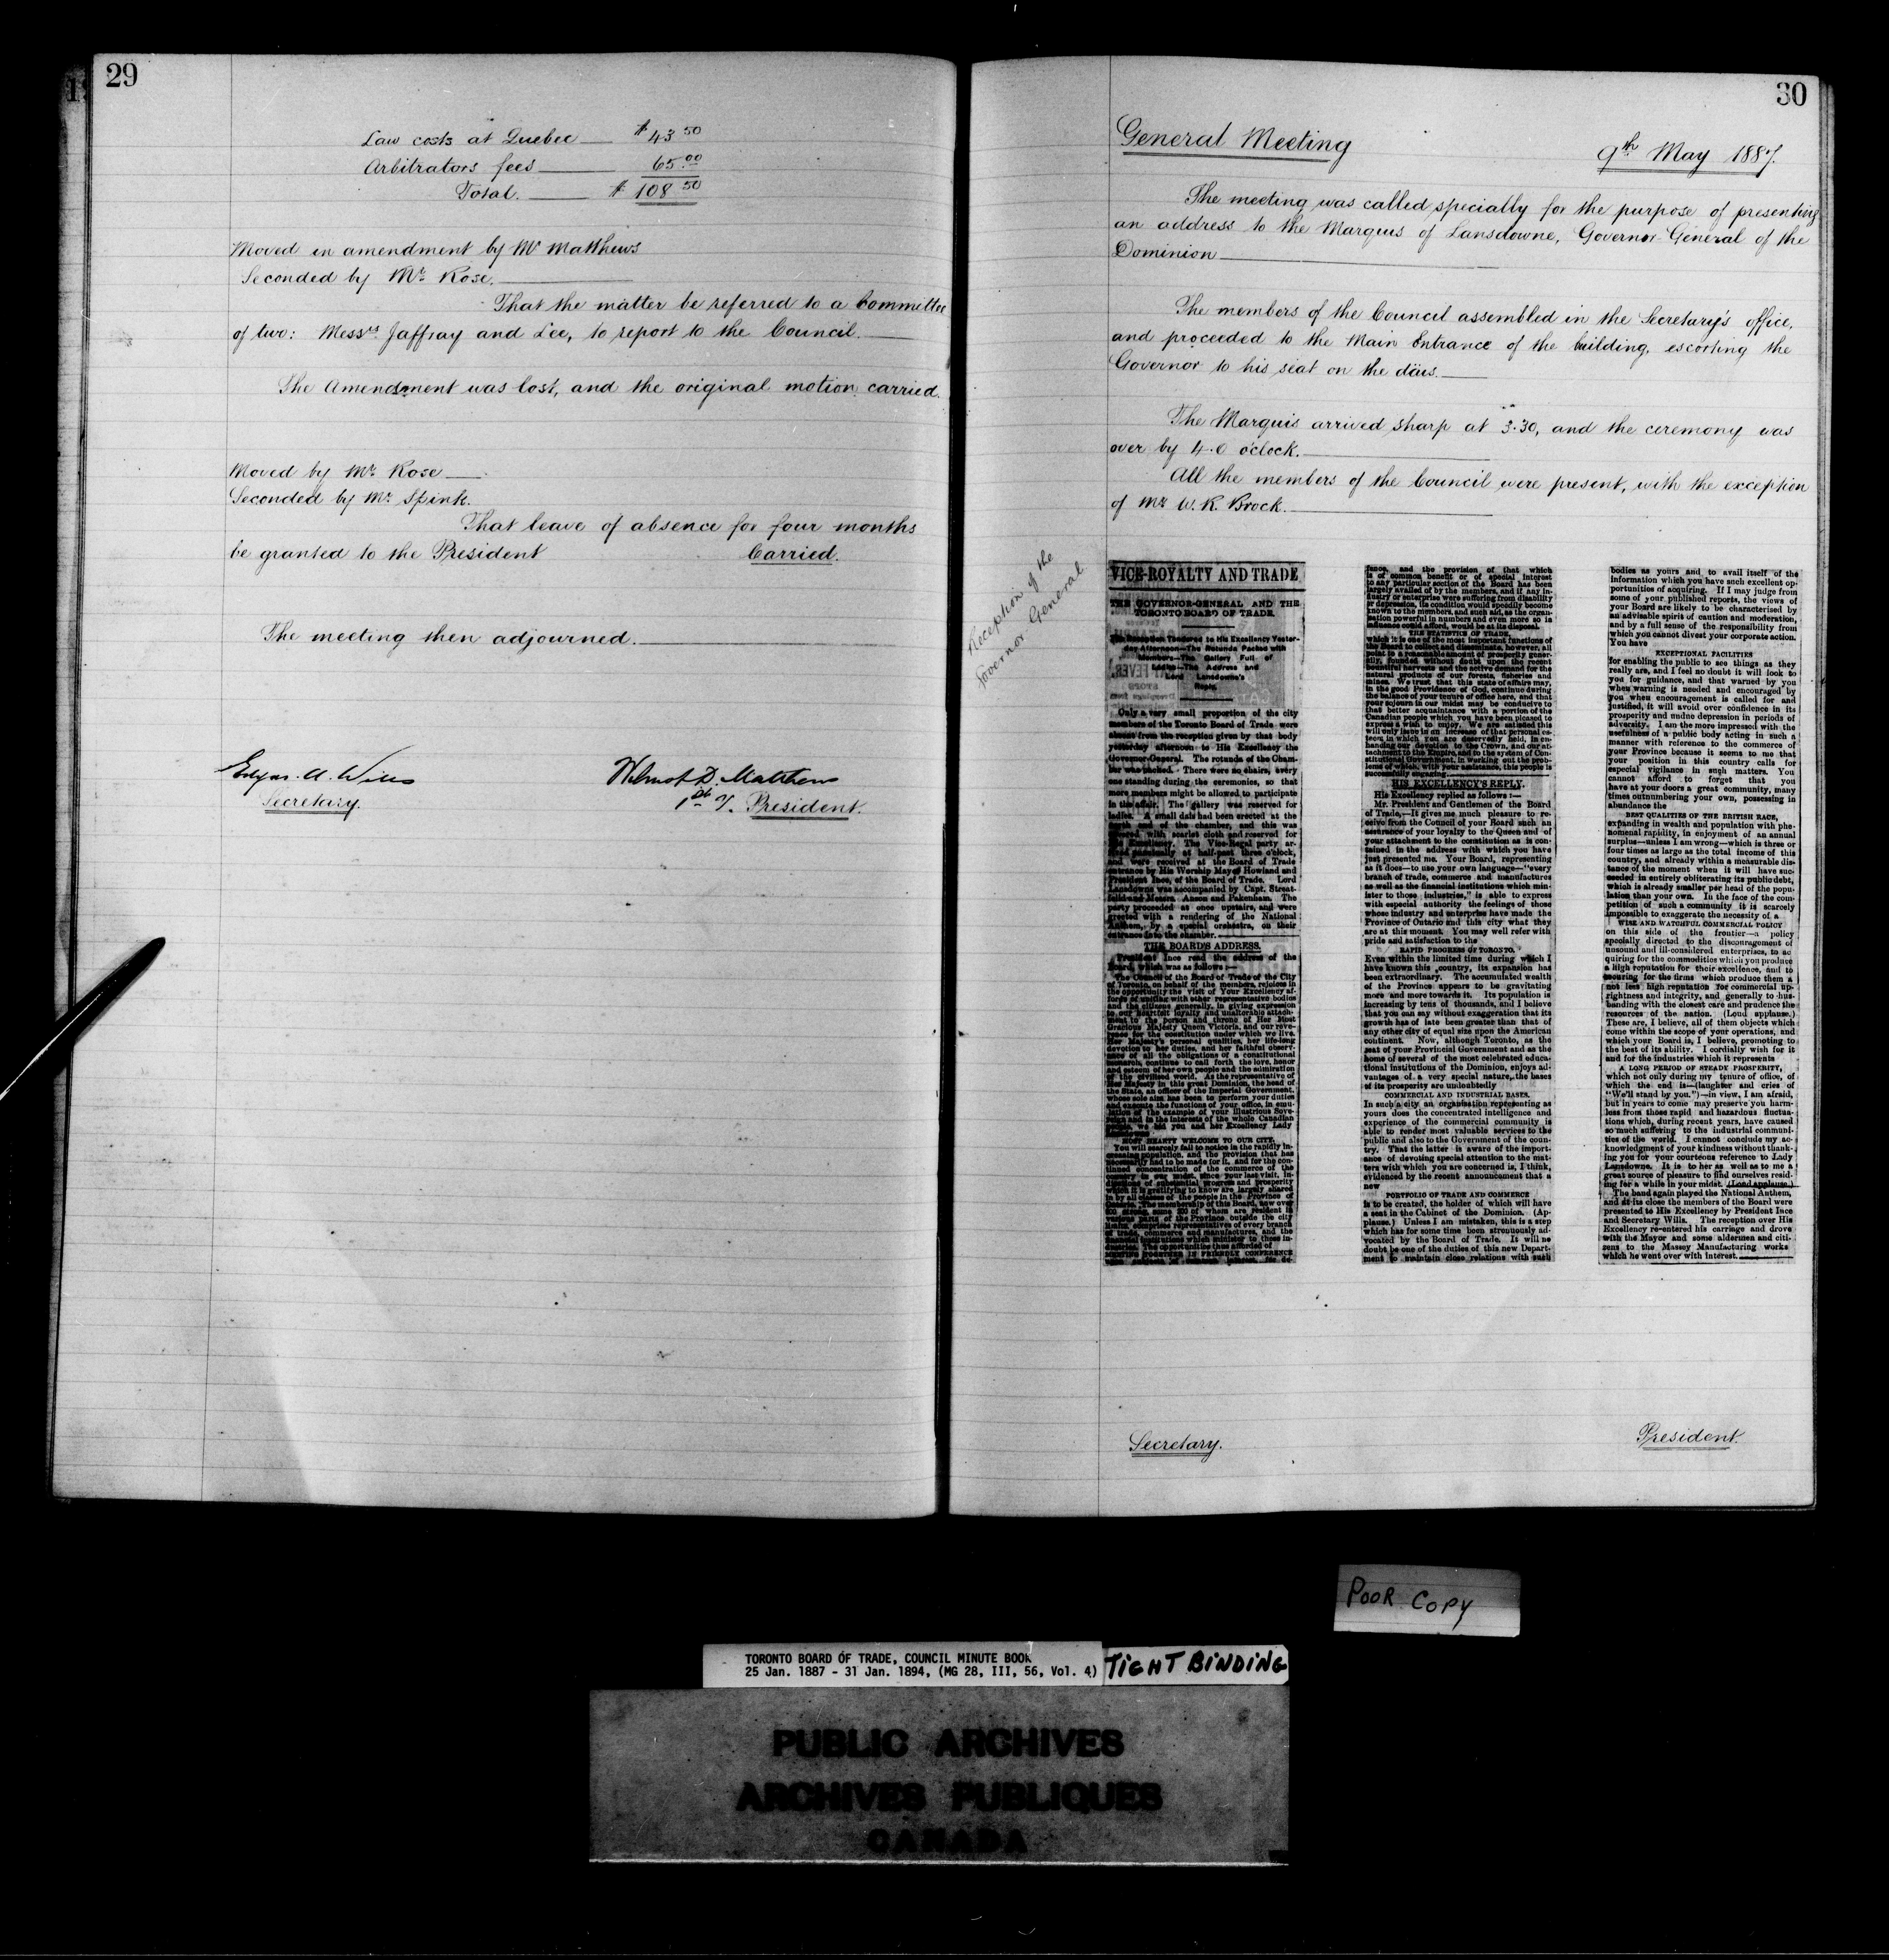 29
Law costs at Quebec $43 50
Arbitrators fees 65.00
Total. $ 108 50
Moved in amendment by Mr Matthews
Seconded by Mr. Rose.
That the matter be referred to a Committee
of two: Messrs Jaffray and Lee, to report to the Council.
The Amendment was lost, and the original motion carried.
Moved by Mr. Rose
Seconded by Mr. Spink.
That leave of absence for four months
be granted to the President Carried.
The meeting then adjourned.
Edgar A. Wills Wilmot D. Matthews
Secretary. 1st V. President.
30
General Meeting 9th May 1887.
The meeting was called specially for the purpose of presenting
an address to the Marquis of Lansdowne, Governor-General of the
Dominion
The members of the Council assembled in the Secretary's office,
and proceeded to the Main Entrance of the building, escorting the
Governor to his seat on the däis.
The Marquis arrived sharp at 3.30, and the ceremony was
over by 4.0 o'clock.
All the members of the Council were present, with the exception
of Mr W. R. Brock.
Reception of the
Governor General
VICE-ROYALTY AND TRADE
THE GOVERNOR-GENERAL AND THE
TORONTO BOARD OF TRADE.
The Reception Tendered to His Excellency Yester-
day Afternoon—The Rotunda Packed with
Members—The Gallery Full of
Ladies—The Address and
Lord Lansdowne's
Reply.
Only a very small proportion of the city
members of the Toronto Board of Trade were
absent from the reception given by that body
yesterday afternoon to His Excellency the
Governor-General. The rotunda of the Cham-
ber was packed. There were no chairs, every
one standing during the ceremonies, so that
more members might be allowed to participate
in the affair. The gallery was reserved for
ladies. A small dais had been erected at the
north end of the chamber, and this was
covered with scarlet cloth and reserved for
His Excellency. The Vice-Regal party ar-
rived punctually at half-past three o'clock,
and were received at the Board of Trade
entrance by His Worship Mayor Howland and
President Ince, of the Board of Trade. Lord
Lansdowne was accompanied by Capt. Streat-
feild and Messrs. Anson and Pakenham. The
party proceeded at once upstairs, and were
greeted with a rendering of the National
Anthem, by a special orchestra, on their
entrance into the chamber.
THE BOARD'S ADDRESS.
President Ince read the address of the
Board, which was as follows:—
The Council of the Board of Trade of the City
of Toronto, on behalf of the members, rejoices in
the opportunity the visit of Your Excellency af-
fords of uniting with other representative bodies
and the citizens generally, in giving expression
to our heartfelt loyalty and unalterable attach-
ment to the person and throne of Her Most
Gracious Majesty Queen Victoria, and our reve-
rence for the constitution under which we live.
Her Majesty's personal qualities, her life-long
devotion to her duties, and her faithful observ-
ance of all the obligations of a constitutional
monarch, continue to call forth the love, honor
and esteem of her own people and the admiration
of the civilized world. As the representative of
Her Majesty in this great Dominion, the head of
the State, an officer of the Imperial Government,
whose sole aim has been to perform your duties
and execute the functions of your office, in emu-
lation of the example of your illustrious Sove-
reign and in the interests of the whole Canadian
people, we bid you and her Excellency Lady
Lansdowne
MOST HEARTY WELCOME TO OUR CITY.
You will scarcely fail to notice in the rapidly in-
creasing population, and the provision that has
necessarily had to be made for it, and for the con-
tinued concentration of the commerce of the
country in our midst, since your last visit, in-
dications of substantial progress and prosperity
which it is gratifying to know are largely shared
in by all classes of the people in the Province of
Ontario. The membership of this Board, now over
strong, some 250 of whom are resident in
various parts of the Province outside the city
limits, comprises representatives of every branch
of trade, commerce and manufactures, and the
financial institutions which minister to these in-
dustries. The opportunities thus afforded of
MEETING TOGETHER IN FRIENDLY CONFERENCE
upon subjects of common interest, for de-
fence, and the provision of that which
is of common benefit or of special interest
to any particular section of the Board has been
largely availed of by the members, and if any in-
dustry or enterprise were suffering from disability
or depression, its condition would speedily become
known to the members, and such aid, as the organi-
sation powerful in numbers and even more so in
influence could afford, would be at its disposal.
THE STATISTICS OF TRADE,
which it is one of the most important functions of
the Board to collect and disseminate, however, all
point to a reasonable amount of prosperity gener-
ally, founded without doubt upon the recent
bountiful harvests and the active demand for the
natural products of our forests, fisheries and
mines. We trust that this state of affairs may,
in the good Providence of God, continue during
the balance of your tenure of office here, and that
your sojourn in our midst may be conducive to
that better acquaintance with a portion of the
Canadian people which you have been pleased to
express a wish to enjoy. We are satisfied this
will only issue in an increase of that personal es-
teem in which you are deservedly held, in en-
hancing our devotion to the Crown, and our at-
tachment to the Empire, and to the system of Con-
stitutional Government, in working out the prob-
lems of which, with your assistance, this people is
successfully engaging.
HIS EXCELLENCY'S REPLY.
His Excellency replied as follows:—
Mr. President and Gentlemen of the Board
of Trade,—It gives me much pleasure to re-
ceive from the Council of your Board such an
assurance of your loyalty to the Queen and of
your attachment to the constitution as is con-
tained in the address with which you have
just presented me. Your Board, representing
as it does—to use your own language—"every
branch of trade, commerce and manufactures
as well as the financial institutions which min-
ister to those industries," is able to express
with especial authority the feelings of those
whose industry and enterprise have made the
Province of Ontario and this city what they
are at this moment. You may well refer with
pride and satisfaction to the
RAPID PROGRESS OF TORONTO.
Even within the limited time during which I
have known this country, its expansion has
been extraordinary. The accumulated wealth
of the Province appears to be gravitating
more and more towards it. Its population is
increasing by tens of thousands, and I believe
that you can say without exaggeration that its
growth has of late been greater than that of
any other city of equal size upon the American
continent. Now, although Toronto, as the
seat of your Provincial Government and as the
home of several of the most celebrated educa-
tional institutions of the Dominion, enjoys ad-
vantages of a very special nature, the bases
of its prosperity are undoubtedly
COMMERCIAL AND INDUSTRIAL BASES.
In such a city an organisation representing as
yours does the concentrated intelligence and
experience of the commercial community is
able to render most valuable services to the
public and also to the Government of the coun-
try. That the latter is aware of the import-
ance of devoting special attention to the mat-
ters with which you are concerned is, I think,
evidenced by the recent announcement that a
new
PORTFOLIO OF TRADE AND COMMERCE
is to be created, the holder of which will have
a seat in the Cabinet of the Dominion. (Ap-
plause.) Unless I am mistaken, this is a step
which has for some time been strenuously ad-
vocated by the Board of Trade. It will no
doubt be one of the duties of this new Depart-
ment to maintain close relations with such
bodies as yours and to avail itself of the
information which you have such excellent op-
portunities of acquiring. If I may judge from
some of your published reports, the views of
your Board are likely to be characterised by
an advisable spirit of caution and moderation,
and by a full sense of the responsibility from
which you cannot divest your corporate action.
You have
EXCEPTIONAL FACILITIES
for enabling the public to see things as they
really are, and I feel no doubt it will look to
you for guidance, and that warned by you
when warning is needed and encouraged by
you when encouragement is called for and
justified, it will avoid over confidence in its
prosperity and undue depression in periods of
adversity. I am the more impressed with the
usefulness of a public body acting in such a
manner with reference to the commerce of
your Province because it seems to me that
your position in this country calls for
especial vigilance in such matters. You
cannot afford to forget that you
have at your doors a great community, many
times outnumbering your own, possessing in
abundance the
BEST QUALITIES OF THE BRITISH RACE,
expanding in wealth and population with phe-
nomenal rapidity, in enjoyment of an annual
surplus—unless I am wrong—which is three or
four times as large as the total income of this
country, and already within a measurable dis-
tance of the moment when it will have suc-
ceeded in entirely obliterating its public debt,
which is already smaller per head of the popu-
lation than your own. In the face of the com-
petition of such a community it is scarcely
impossible to exaggerate the necessity of a
WISE AND WATCHFUL COMMERCIAL POLICY
on this side of the frontier—a policy
specially directed to the discouragement of
unsound and ill-considered enterprises, to ac
quiring for the commodities which you produce
a high reputation for their excellence, and to
securing for the firms which produce them a
not less high reputation for commercial up-
rightness and integrity, and generally to hus-
banding with the closest care and prudence the
resources of the nation. (Loud applause.)
These are, I believe, all of them objects which
come within the scope of your operations, and
which your Board is, I believe, promoting to
the best of its ability. I cordially wish for it
and for the industries which it represents
A LONG PERIOD OF STEADY PROSPERITY,
which not only during my tenure of office, of
which the end is—(laughter and cries of
"We'll stand by you.")—in view, I am afraid,
but in years to come may preserve you harm-
less from those rapid and hazardous fluctua-
tions which, during recent years, have caused
so much suffering to the industrial communi-
ties of the world. I cannot conclude my ac-
knowledgment of your kindness without thank-
ing you for your courteous reference to Lady
Lansdowne. It is to her as well as to me a
great source of pleasure to find ourselves resid-
ing for a while in your midst. (Loud applause.)
The band again played the National Anthem,
and at its close the members of the Board were
presented to His Excellency by President Ince
and Secretary Wills. The reception over His
Excellency re-entered his carriage and drove
with the Mayor and some aldermen and citi-
zens to the Massey Manufacturing works
which he went over with interest.
Secretary. President.
POOR COPY
TORONTO BOARD OF TRADE, COUNCIL MINUTE BOOK
25 Jan. 1887 - 31 Jan. 1894, (MG 28, III, 56, Vol. 4)
TIGHT BINDING
PUBLIC ARCHIVES
ARCHIVES PUBLIQUES
CANADA